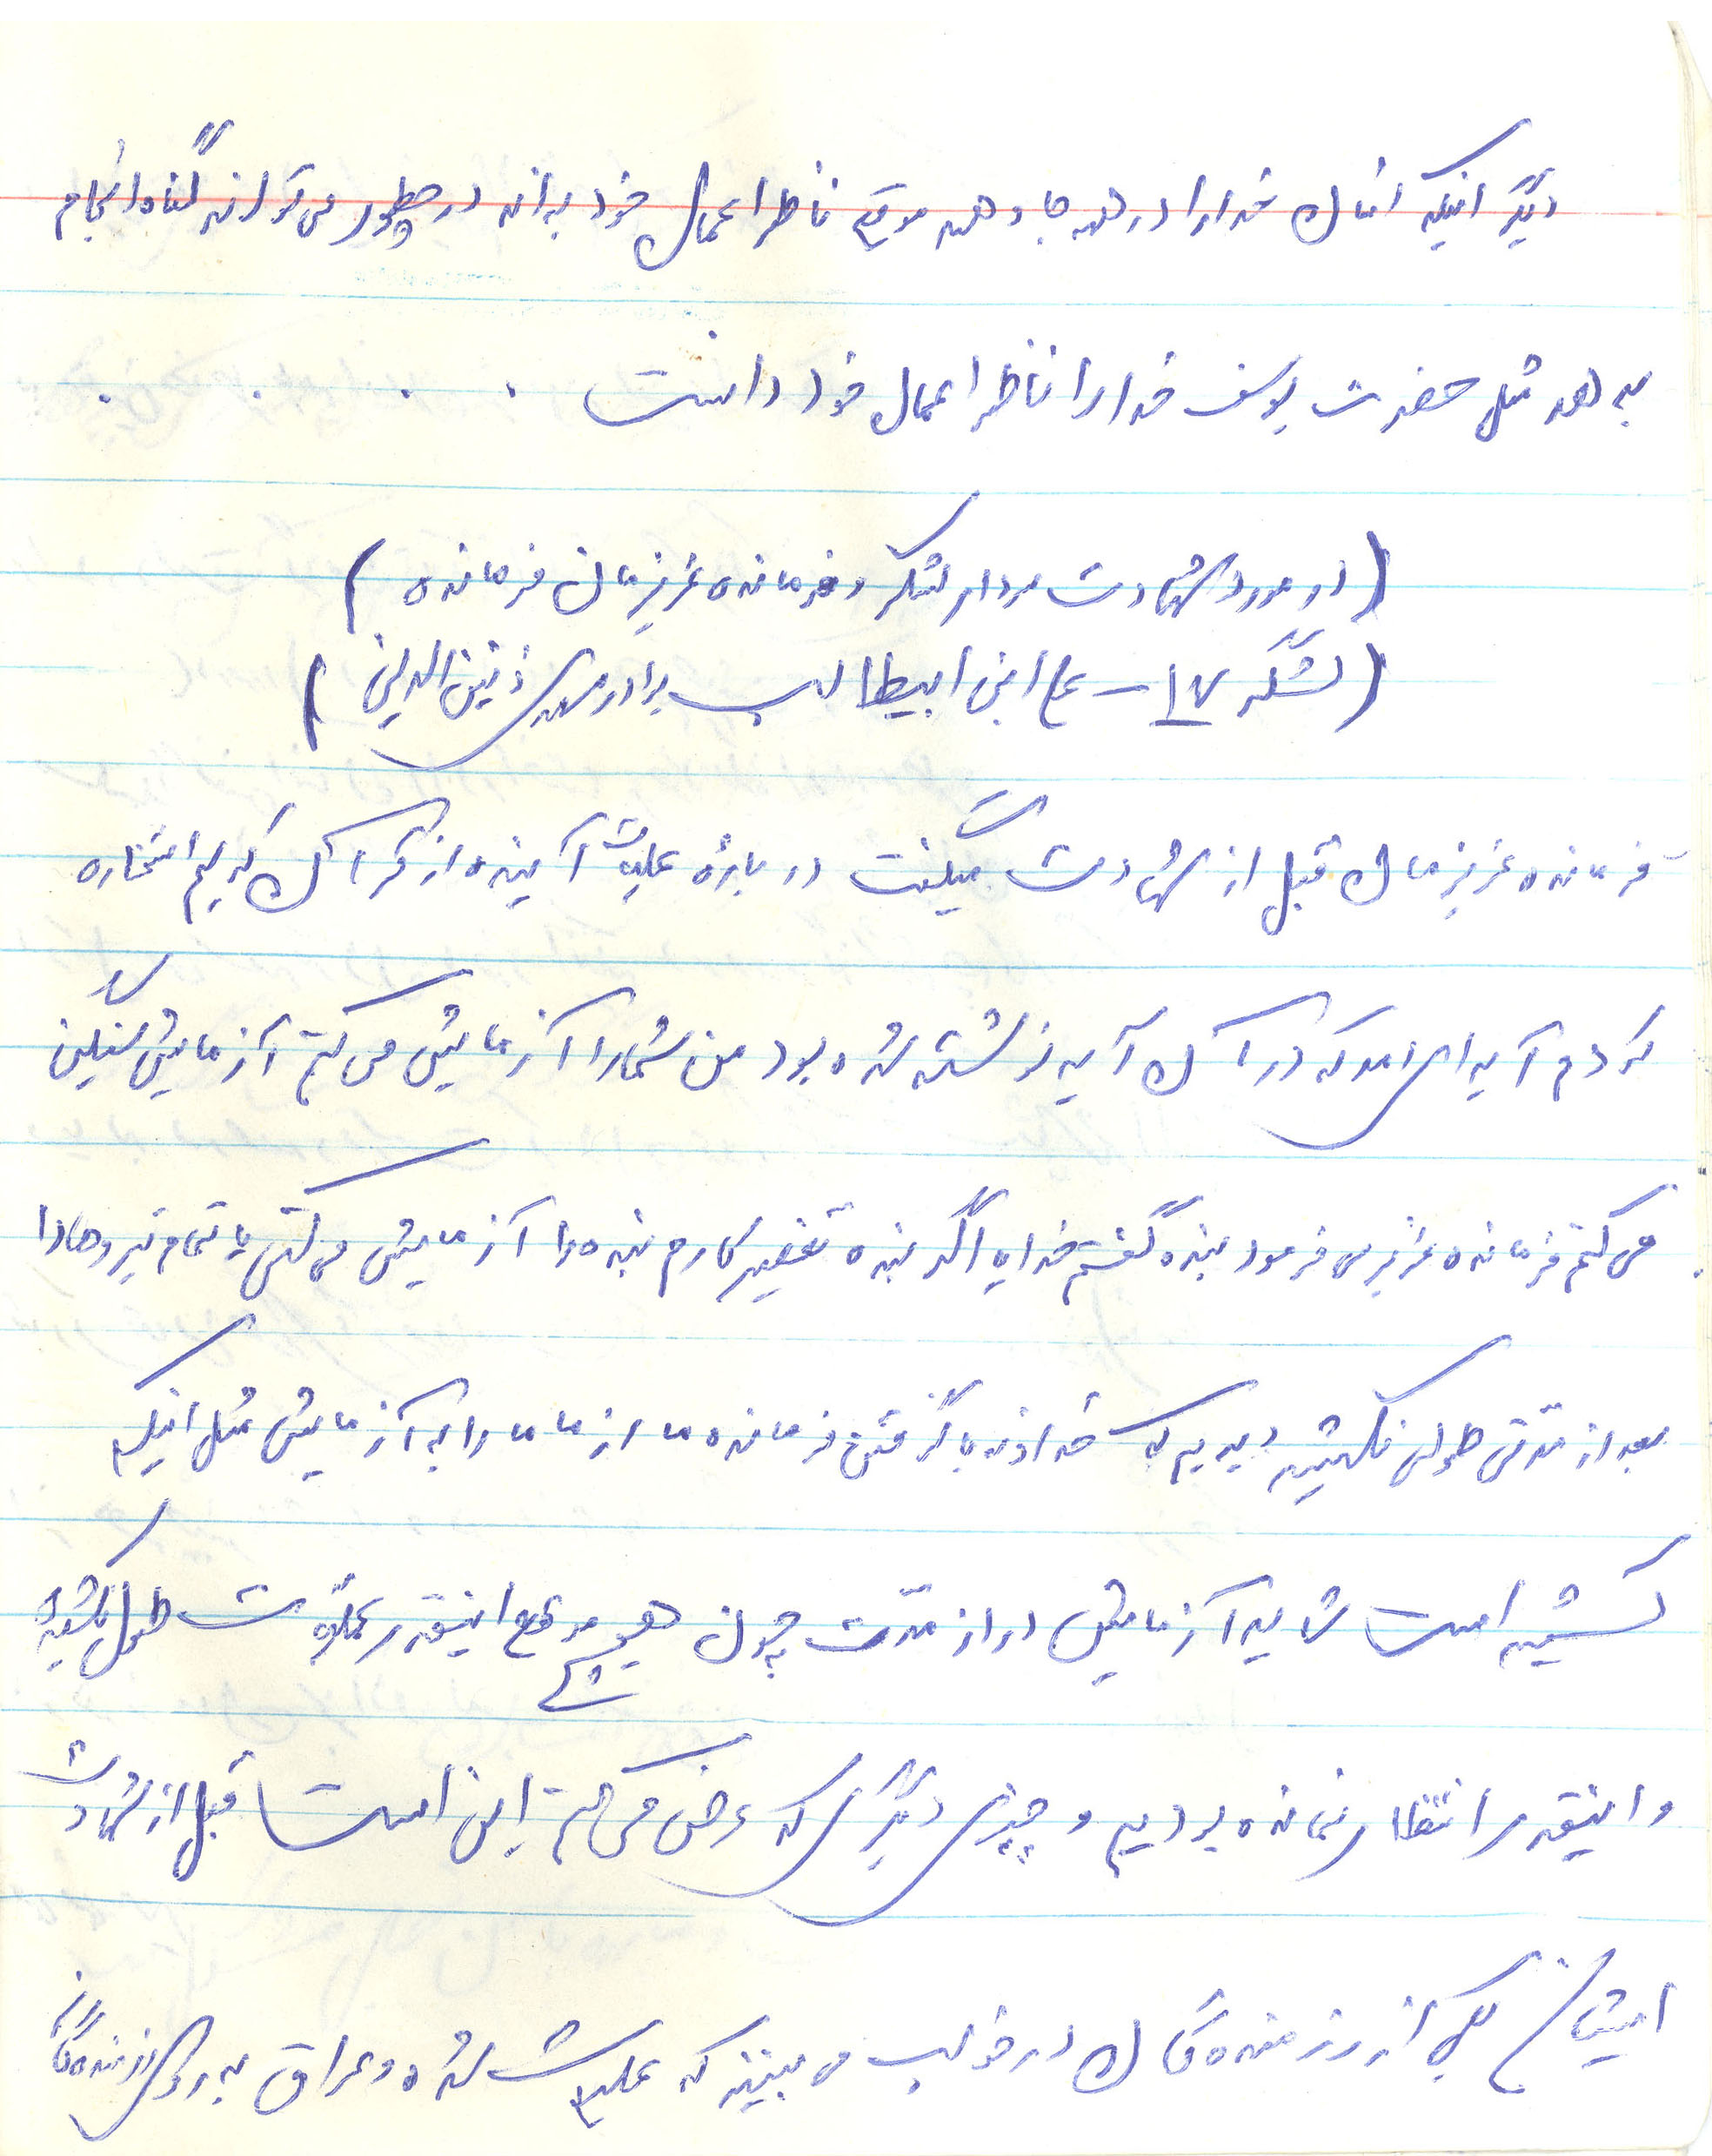 دیگر اینکه انسان خدا را در همه جا و همه موقع ناظر اعمال خود بداند در چطور می تواند گناه انجام
بدهد مثل حضرت یوسف خدا را ناظر اعمال خود دانست . . . .
(در مورد شهادت سردار لشکر و فرمانده عزیزمان فرمانده)
(لشگر ۱۷ – علی ابن ابیطالب برادر مهدی زین الدین)
فرمانده عزیزمان قبل از شهادت میگفت در بارهٔ عملیات آینده از قرآن کریم استخاره
کردم آیه ای آمد که در آن آیه نوشته شده بود من شما را آزمایش می کنم آزمایش سنگین
می کنم فرمانده عزیز می فرمود بنده گفتم خدایا اگر بنده تقصیر کارم بنده را آزمایش می کنی یا تمام نیروها را
بعد از مدتی طولی نکشید دیدیم که خداوند با گرفتن فرمانده ما از ما ما را به آزمایش مثل اینکه
کشیده است شاید آزمایش دراز مدت چون هیچ موقع اینقدر عملیات طول نکشیده
و اینقدر انتظار نمانده بودیم و چیزی دیگری که عرض می کنم این است قبل از شهادت
ایشان یکی از رزمندگان در خواب می بیند که عملیات شده و عراق به روی رزمندگان